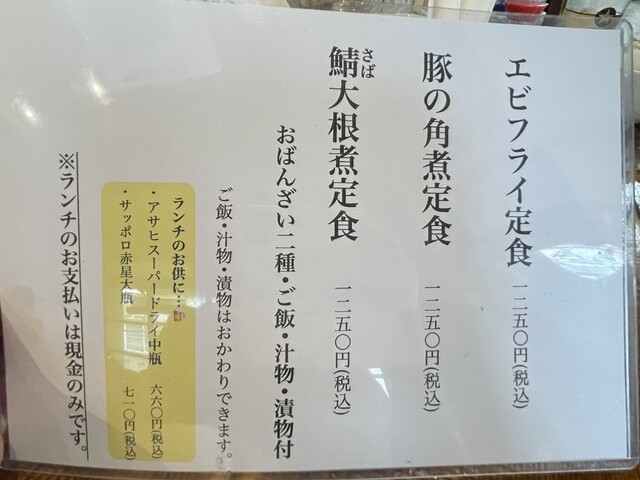 エビフライ定食 一二五〇円(税込)
豚の角煮定食 一二五〇円(税込)
鯖大根煮定食 一二五〇円(税込)
さば
おばんざい二種・ご飯・汁物・漬物付
ご飯・汁物・漬物はおかわりできます。
ランチのお供に…
・アサヒスーパードライ中瓶 六六〇円(税込)
・サッポロ赤星大瓶 七一〇円(税込)
※ランチのお支払いは現金のみです。